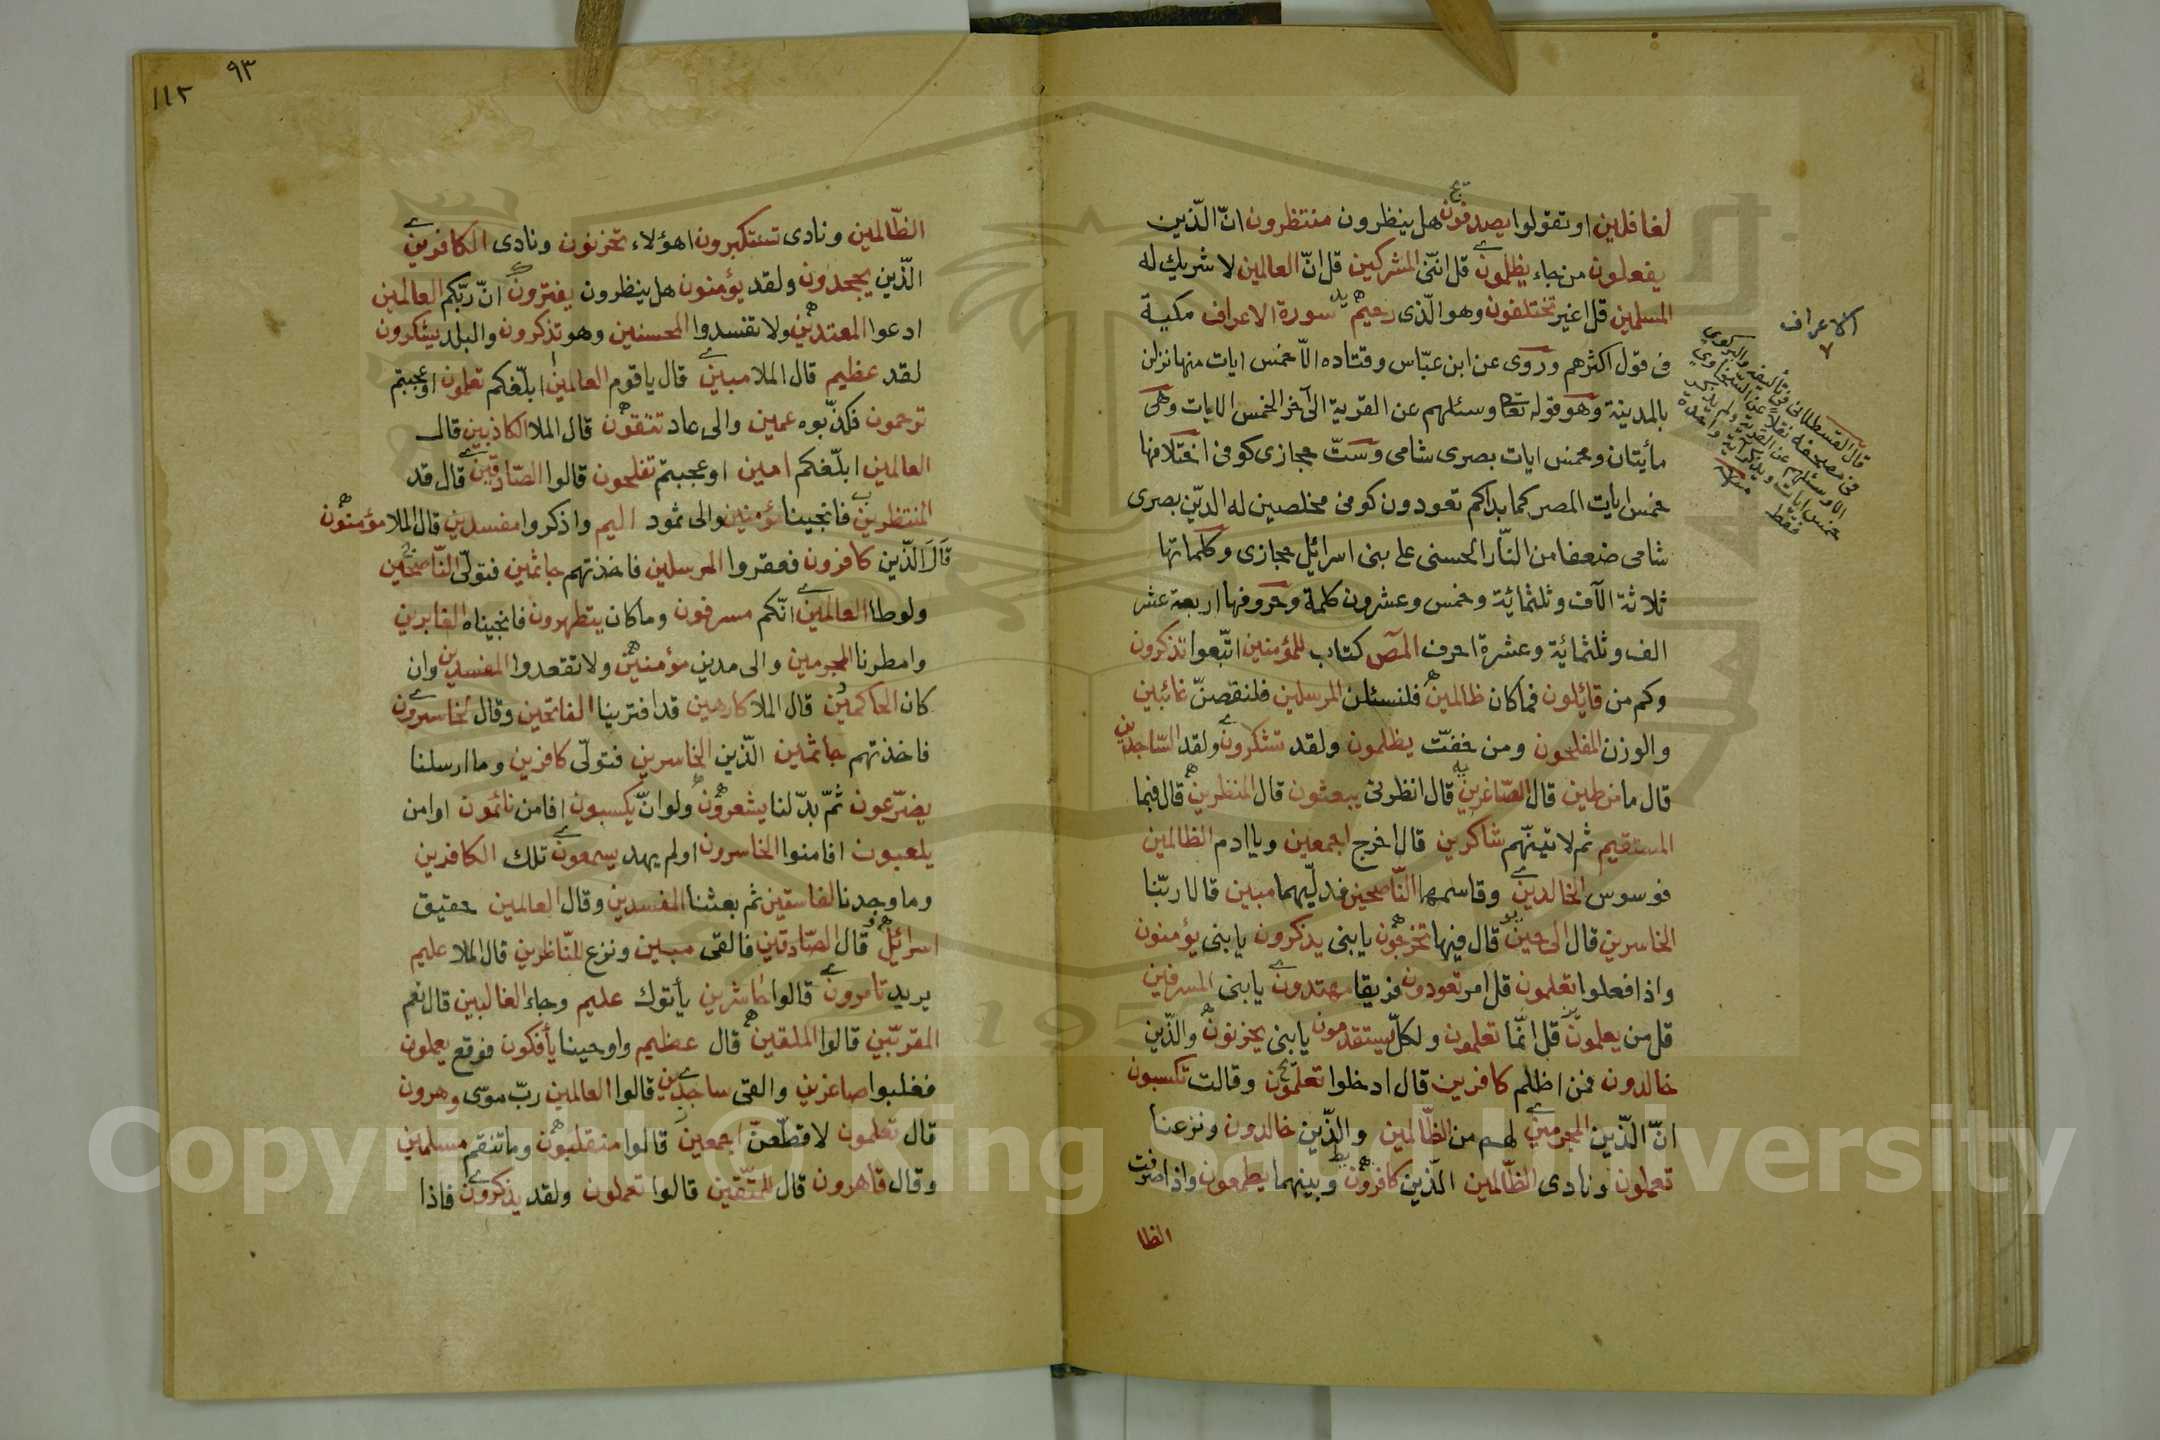 لغافلين او تقولوا يصدفون هل ينظرون منتظرون انّ الّذين
يفعلون من جاء يظلمون قل انّنى المشركين قل انّ العالمين لا شريك له
المسلمين قل اغير تختلفون وهو الّذى رحيم سورة الاعراف مكية
فى قول اكثرهم وروى عن ابن عبّاس وقتاده الاّ خمس ايات منها نزلن
بالمدينة وهو قوله تعا وسئلهم عن القرية الى آخر الخمس الايات وهى
مأيتان وخمس ايات بصرى شامى وستّ حجازى كوفى اختلافها
خمس ايات المصر كما بداكم تعودون كوفى مخلصين له الديّن بصرى
شامى ضعفا من النّار الحسنى على بنى اسرائيل حجازى وكلماتها
ثلاثة الآف وثلثمائة وخمس وعشرون كلمة وحروفها اربعة عشر
الف وثلثمائة وعشرة احرف المص كتاب للمؤمنين اتّبعوا تذكرون
وكم من قايلون فما كان ظالمين فلنسئلن المرسلين فلنقصنّ غائبين
والوزن المفلحون ومن خفّت يظلمون ولقد تشكرون ولقد السّاجدين
قال ما من طين قال الصّاغرين قال انظرنى يبعثون قال المنظرين قال فبما
المستقيم ثم لاتينّهم شاكرين قال اخرج اجمعين ويا ادم الظالمين
فوسوس الخالدين وقاسمهما النّاصحين فدلّيهما مبين قالا ربّنا
الخاسرين قال الى حين قال فيها تخرجون يا بنى يذكرون يا بنى يؤمنون
واذا فعلوا تعلمون قل امر تعودون فريقا مهتدون يا بنى المسرفين
قل من يعلمون قل انّما تعلمون ولكلّ يستقدمون يا بنى يحزنون والّذين
خالدون فمن اظلم كافرين قال ادخلوا تعلمون وقالت تكسبون
انّ الّذين المجرمين لهم من الظّالمين والّذين خالدون ونزعنا
تعملون ونادى الظّالمين الّذين كافرون وبينهما يطمعون واذا صرفت
الظا
الاعراف
٧
قال القسطلانى فى تأليفه والبركوى
فى مصحفه نقلا عن السّخاوى
الا وسئلهم عن القرية ولم يذكر
خمس ايات ويذكر آية واحدة
فقط
٩٣
١١٢
الظّالمين ونادى تستكبرون اهؤلاء تحزنون ونادى الكافرين
الّذين يجحدون ولقد يؤمنون هل ينظرون يفترون انّ ربّكم العالمين
ادعوا المعتدين ولا تفسدوا المحسنين وهو تذكرون والبلد يشكرون
لقد عظيم قال الملا مبين قال يا قوم العالمين ابلّغكم تعلمون اوعجبتم
ترحمون فكذّبوه عمين والى عاد تتّقون قال الملا الكاذبين قال
العالمين ابلّغكم امين اوعجبتم تفلحون قالوا الصّادقين قال قد
المنتظرين فانجينا مؤمنين والى ثمود اليم واذكروا مفسدين قال الملا مؤمنون
قال الّذين كافرون فعقروا المرسلين فاخذتهم جاثمين فتولّى النّاصحين
ولوطا العالمين انّكم مسرفون وما كان يتطهرون فانجيناه الغابرين
وامطرنا المجرمين والى مدين مؤمنين ولا تقعدوا المفسدين وان
كان الحاكمين قال الملا كارهين قد افترينا الفاتحين وقال لخاسرون
فاخذتهم جاثمين الّذين الخاسرين فتولّى كافرين وما ارسلنا
يضرّعون ثمّ بدّلنا يشعرون ولو انّ يكسبون افامن نائمون اوامن
يلعبون افامنوا الخاسرون اولم يهد يسمعون تلك الكافرين
وما وجدنا لفاسقين ثم بعثنا المفسدين وقال العالمين حقيق
اسرائيل قال الصّادقين فالقى مبين ونزع للنّاظرين قال الملا عليم
يريد تامرون قالوا حاشرين يأتوك عليم وجاء الغالبين قال نعم
المقربّين قالوا الملقين قال عظيم واوحينا يأفكون فوقع يعملون
فغلبوا صاغرين والقى ساجدين قالوا العالمين ربّ موسى وهرون
قال تعلمون لاقطّعنّ اجمعين قالوا منقلبون وما تنقم مسلمين
وقال قاهرون قال للمتّقين قالوا تعملون ولقد يذكرون فاذا
Copyright © King Saud University